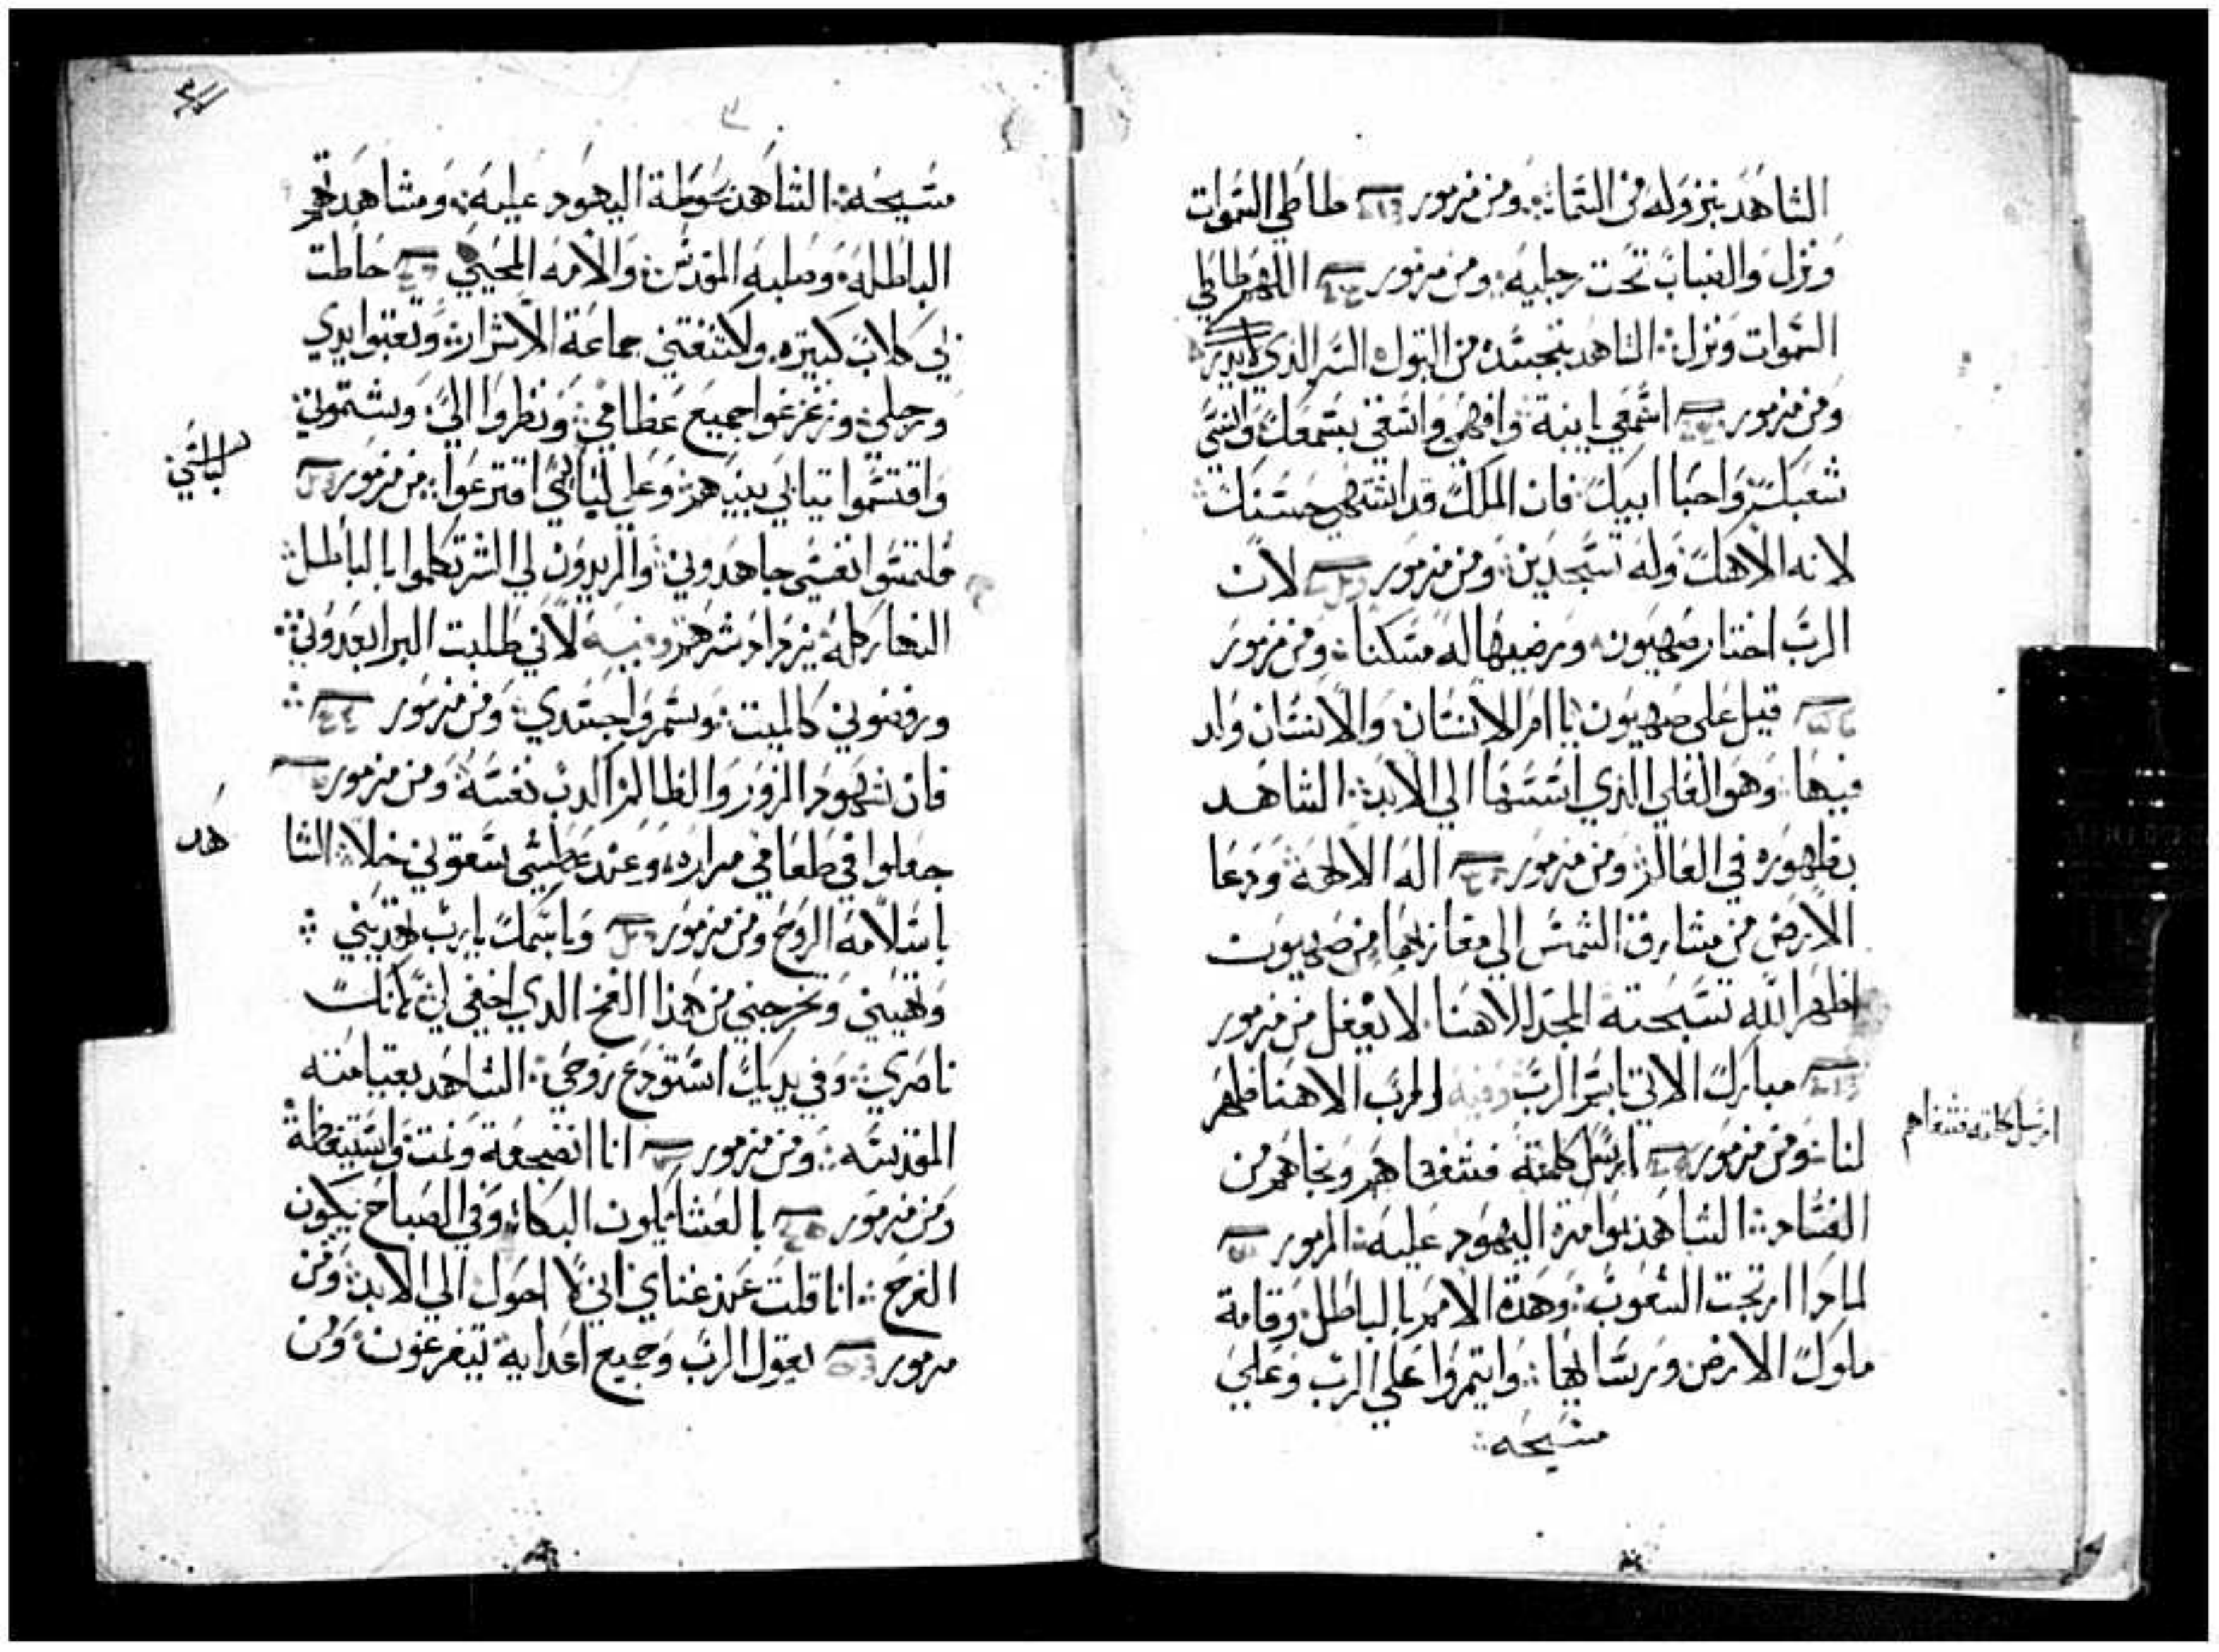 الشاهد بنزوله من السماء ومن مزمور طاطي السموات
ونزل والضباب تحت رجليه ومن مزمور اللهم طاطي
السموات ونزل الشاهد بتجسده من البتول السر الذي
ومن مزمور اسمعي يا ابنة وافهمي وانصتي بسمعك وانسي
شعبك واحبا ابيك فان الملك قد اشتهي حسنك
لانه الاهك وله تسجدين ومن مزمور لان
الرب اختار صهيون ورضيها له مسكنا ومن مزمور
قيل على صهيون يا ام الانسان والانسان ولد
فيها وهو العلي الذي اسسها الي الابد الشاهد
بظهوره في العالم ومن مزمور اله الالهة ودعا
الارض من مشارق الشمس الي مغاربها من صهيون
اظهر الله تسبحته المجد الاهنا لا يغفل من مزمور
مبارك الاتي باسم الرب وفيه الرب الاهنا ظهر
لنا ومن مزمور ارسل كلمته فشفاهم ونجاهم من
الفساد الشاهد بوامرة اليهود عليه المزمور
لماذا ارتجت الشعوب وهذة الامم بالباطل وقامة
ملوك الارض ورسالها وايتمروا علي الرب وعلي
مسيحه
ارسل كلمته فشفاهم
مسيحه الشاهد سوطة اليهود عليه ومشاهدتهم
الباطله وصلبه المقدس والامه المحيي حاطت
بي كلاب كتيره واكتنفتني جماعة الاشرار وتعبوا يدي
ورجلي وزعزعوا جميع عظامي ونظروا الي وشتموني
واقتسموا تيابي بينهم وعلي لباسي اقترعوا من مزمور
لباسي
فلتمسوا نفسي جاهدوني والمريدون لي الشر تكلموا بالباطل
النهار كله يزداد شرهم وفيه لاني طلبت البر ابعدوني
ورفضوني كالميت وسمروا جسدي ومن مزمور
فان شهود الزور والظالم اكدب نفسه ومن مزمور
جعلوا في طعامي مراره وعند عطشي سقوني خلا الشا
هد
باسلامه الروح ومن مزمور وباسمك يا رب تهديني
وتهيني وتخرجني من هذا الفخ الدي اخفي لي لانك
ناصري وفي يديك استودع روحي الشاهد بقيامته
المقدسه ومن مزمور انا اضجعة ونمت واستيقظة
ومن مزمور بالعشا يكون البكا وفي الصباح يكون
الفرح انا قلت عند غناي اني لا احول الي الابد ومن
مزمور يقول الرب وجميع اعدايه يتفرغون ومن